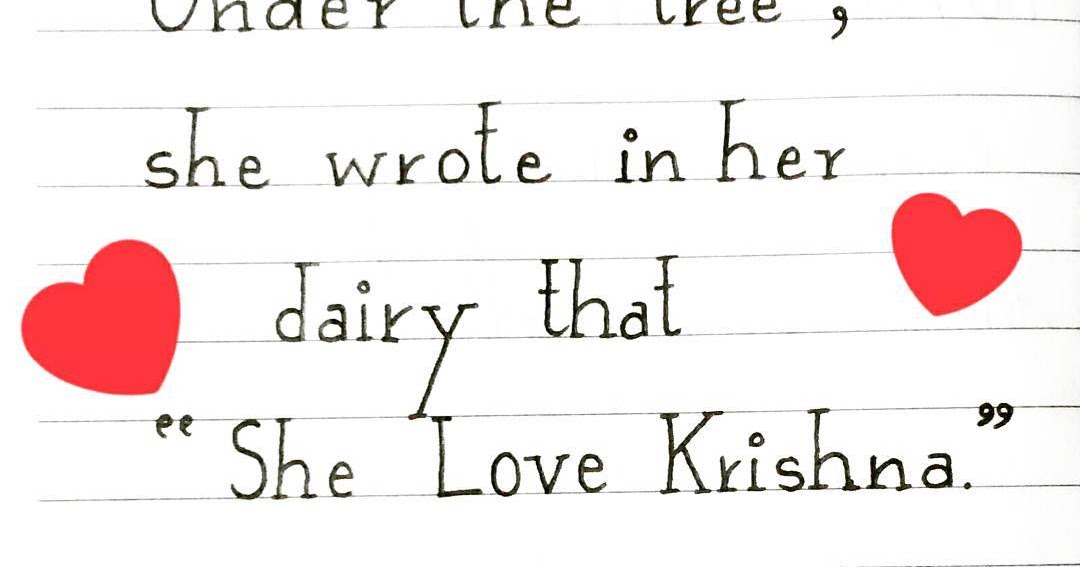 Under the tree,
she wrote in her
dairy that
“She Love Krishna.”